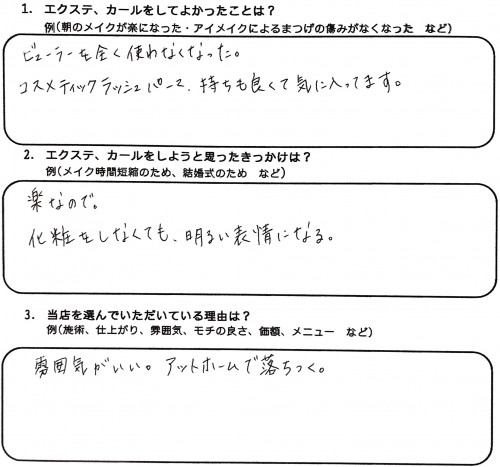 1. エクステ、カールをしてよかったことは？
例(朝のメイクが楽になった・アイメイクによるまつげの傷みがなくなった など)
ビューラーを全く使わなくなった。
コスメティックラッシュパーマ、持ちも良くて気に入ってます。
2. エクステ、カールをしようと思ったきっかけは？
例(メイク時間短縮のため、結婚式のため など)
楽なので。
化粧をしなくても、明るい表情になる。
3. 当店を選んでいただいている理由は？
例(施術、仕上がり、雰囲気、モチの良さ、価額、メニュー など)
雰囲気がいい。アットホームで落ちつく。